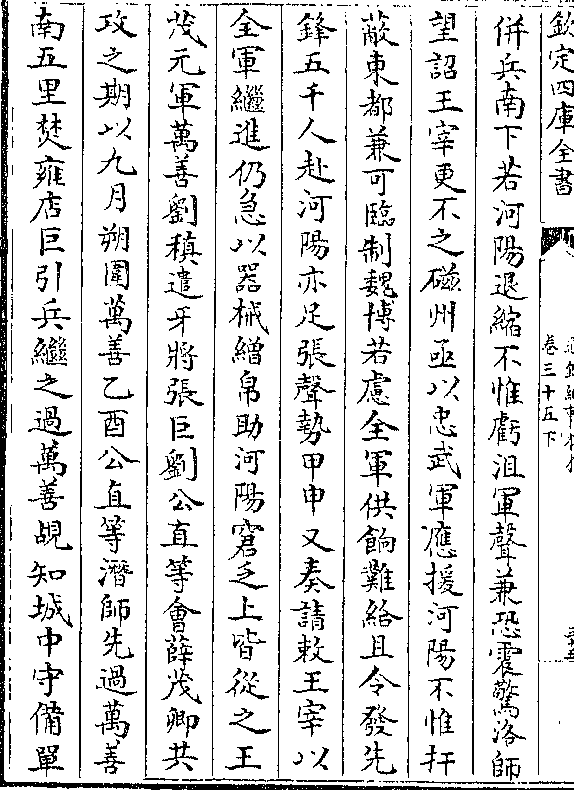 欽定四庫全書
卷三十五下
併兵南下若河陽退縮不惟虧沮軍聲兼恐震驚洛師
望詔王宰更不之磁州亟以忠武軍應援河陽不惟扞
蔽東都兼可臨制魏博若慮全軍供餉難給且令發先
鋒五千人赴河陽亦足張聲勢甲申又奏請敕王宰以
全軍繼進仍急以器械繒帛助河陽窘乏上皆從之王
茂元軍萬善劉稹遣牙將張巨劉公直等會薛茂卿共
攻之期以九月朔圍萬善乙酉公直等潛師先過萬善
南五里焚雍店巨引兵繼之過萬善覘知城中守備單